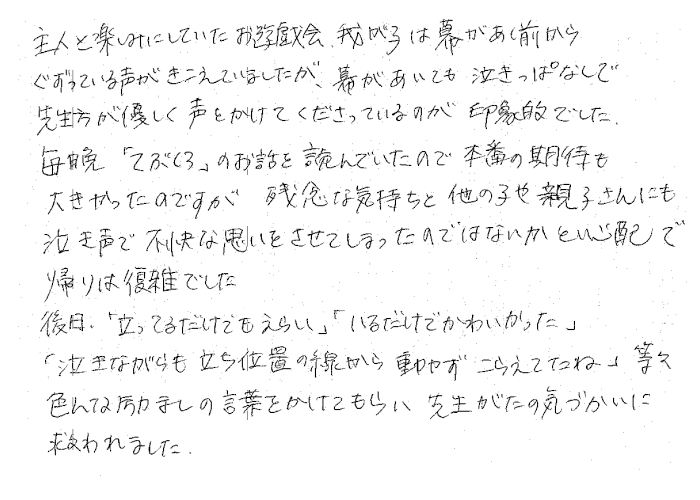 主人と楽しみにしていたお遊戯会、我が子は幕があく前から
ぐずっている声がきこえていましたが、幕があいても泣きっぱなしで
先生方が優しく声をかけてくださっているのが印象的でした。
毎晩「てぶくろ」のお話を読んでいたので本番の期待も
大きかったのですが 残念な気持ちと他の子や親子さんにも
泣き声で不快な思いをさせてしまったのではないかという心配で
帰りは復雑でした
後日、「立ってるだけでもえらい」「いるだけでかわいかった」
「泣きながらも立ち位置の線から動かず こらえてたね」等々
色んな励ましの言葉をかけてもらい 先生がたの気づかいに
救われました。